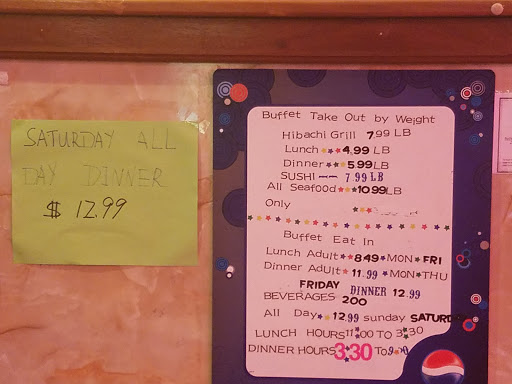 SATURDAY ALL
DAY DINNER
$ 12.99
Buffet Take Out by Weight
Hibachi Grill 7.99 LB
Lunch 4.99 LB
Dinner 5.99 LB
SUSHI 7.99 LB
All Seafood 10.99 LB
Only
Buffet Eat In
Lunch Adult 8.49 MON FRI
Dinner Adult 11.99 MON THU
FRIDAY DINNER 12.99
BEVERAGES 200
All Day 12.99 sunday SATURDAY
LUNCH HOURS 11:00 TO 3:30
DINNER HOURS 3:30 TO